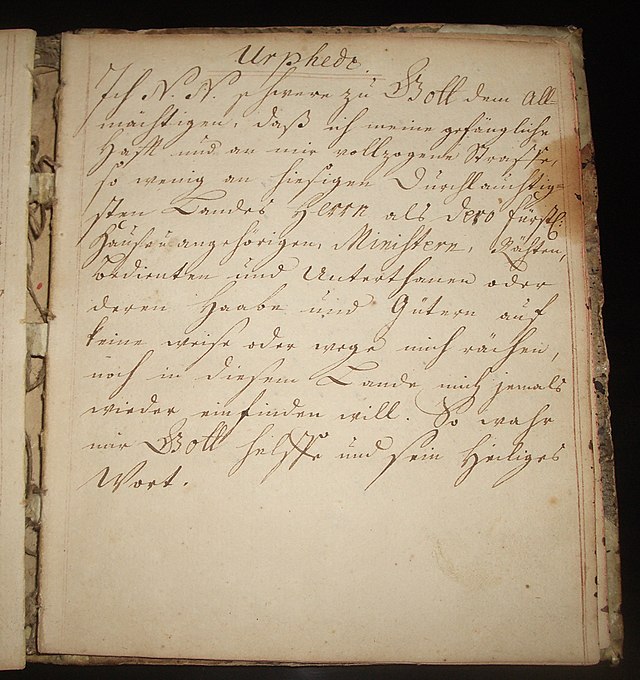 Urphede.
Ich N. N. schwere zu Gott dem All-
mächtigen, daß ich meine gefängliche
Hafft und an mir vollzogene Straffe,
so wenig an hiesigen Durchläuchtig-
sten Landes Herrn als dero fürstl:
Hauses angehörigen, Ministern, Räthen,
bedienten und Unterthanen oder
deren Haabe und Gütern auf
keine weise oder wege mich rächen,
noch in diesem Lande mich jemals
wieder einfinden will. So wahr
mir Gott helffe und sein Heiliges
Wort.